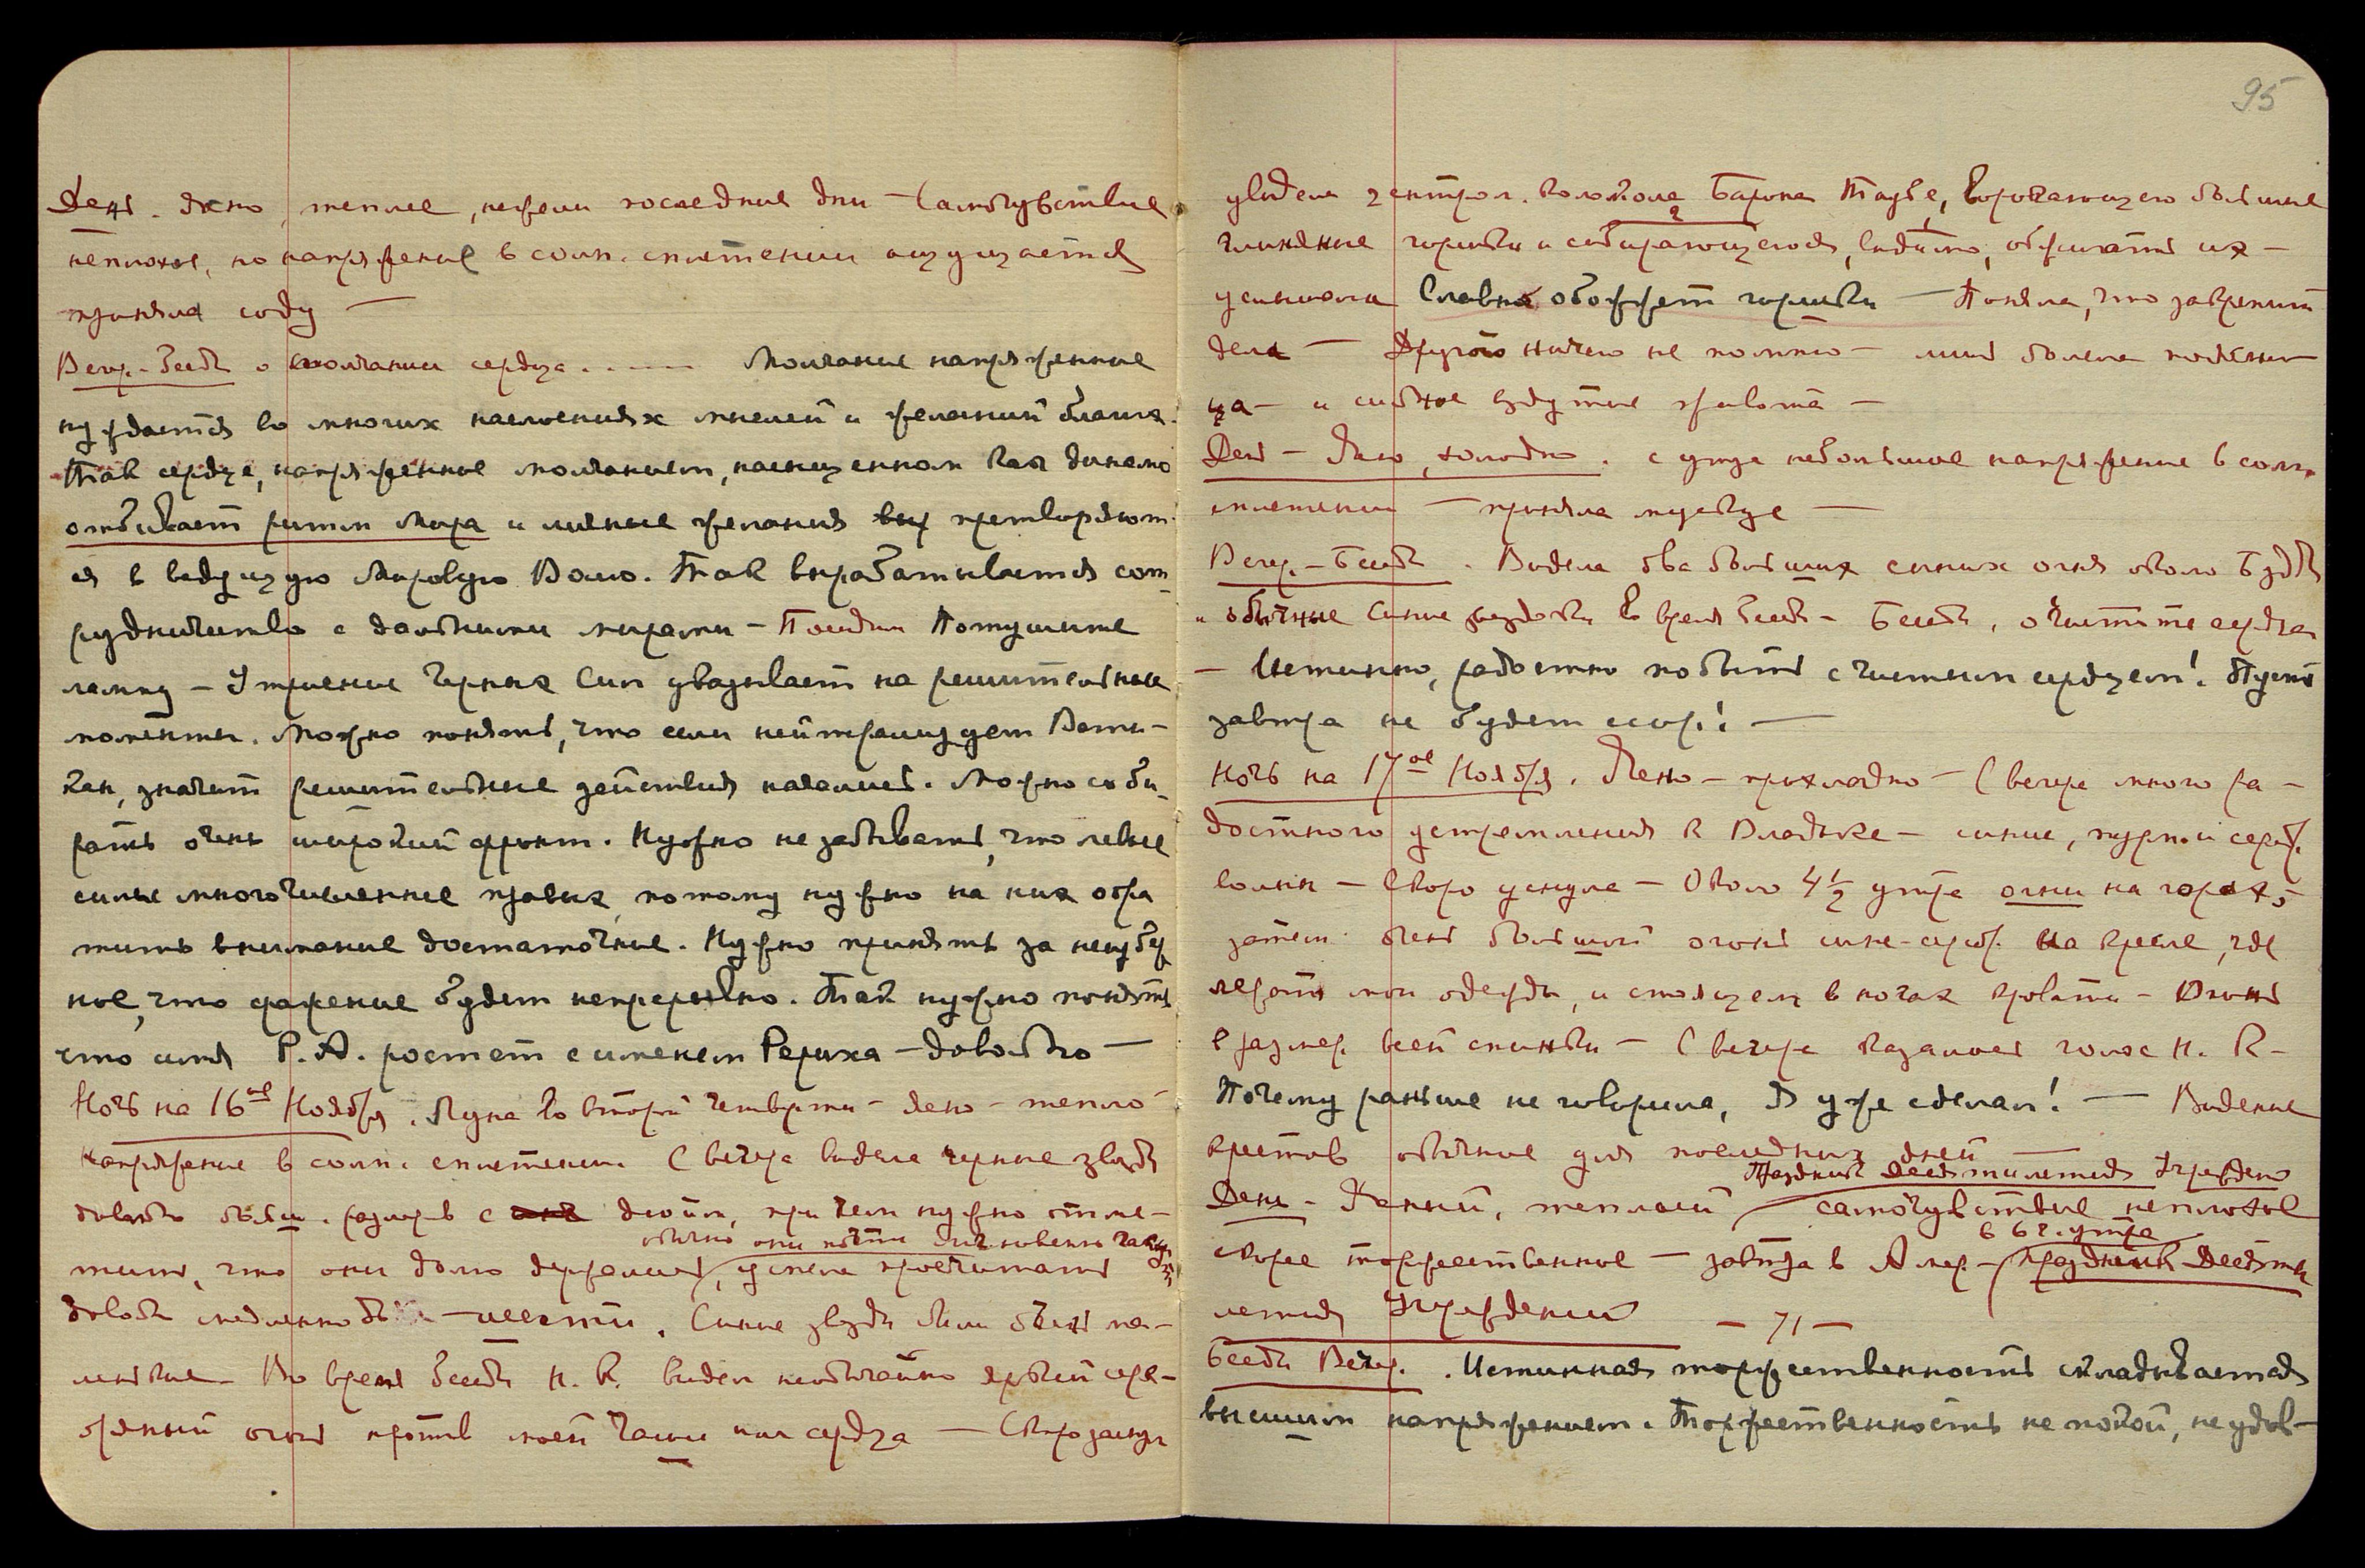 День. Ясно, теплее, нежели последние дни – Самочувствие
неплохое, но напряжение в солн. сплетении ощущается
приняла соду —
Вечер. Бесед. о молчании сердца ...... Молчание напряженное
нуждается во многих наслоениях мыслей и желаний благих.
Так сердце, напряженное молчанием, насыщенном как динамо
отбивает ритм Мира и личные желания претворяют-
ся в ведущую Мировую Волю. Так вырабатывается сот-
рудничество с дальними мирами – Пойдем Потушите
лампу – Утроение Черных Сил указывает на решительные
моменты. Можно понять, что если нейтрализуем Вати-
кан, значит решительные действия начались. Можно соби-
рать очень широкий фронт. Нужно не забывать, что левые
силы многочисленнее правых, потому нужно на них обра
тить внимание достаточное. Нужно принять за неизбеж
ное, что сражение будет непрерывно. Так нужно понять
что имя Р. А. ростет с именем Рериха – довольно —
Ночь на 16ое Ноября. Луна во второй четверти – ясно – тепло –
Напряжение в солн. сплетении. С вечера видела черные звезды
довольно больш. размеров с дюйм, при чем нужно отме-
обычно они почти мгновенны
тить, что они долго держались, успела просчитать
довольно медленно до – шести. Синие звезды были очень ма-
ленькие – Во время бесед. Н. К. видел необычайно яркий сере-
бряный огонь против моей Чаши или сердца — Скоро заснув
95
увидела у контрол. колокола Барона Таубе, ворочающего большие
глиняные горшки и собирающегося, видимо, обжигать их –
услышала Славно обожжет горшки — Поняла, что закрепит
дела — Другого ничего не помню – лишь болела поясни-
ца – и сильное вздутие живота –
День – Ясно, холодно. с утра небольшое напряжение в солн.
сплетении — приняла мускус —
Вечер. – Бесед. Видела два больших синих огня около Будды
и обычные синие звездочки во время бесед. – Бесед. очистите сердца
– Истинно, радостно побыть с чистым сердцем! Пусть
завтра не будет ссор! —
Ночь на 17ое Ноября. Ясно – прохладно – С вечера много ра-
достного устремления к Владыке – синие, пурп. и сереб.
волны – Скоро уснула – Около 4 ½ утра огни на горах –
затем очень большой огонь сине-сереб. на кресле, где
лежат мои одежды, и стоящем в ногах кровати – Огонь
в размер. всей спинки – С вечера казался голос Н. К. –
Почему раньше не говорила, Я уже сделал! — Видение
крестов обычное для последних дней —
Праздник Десятилетия Учрежден
День – Ясный, теплый самочувствие неплохое
в 6 ч. утра
скорее торжественное – завтра в Амер. – праздник Десяти
летия Учреждений
— 71 —
Беседы Вечер. . Истинная торжественность складывается
высшим напряжением. Торжественность не покой, не удов-